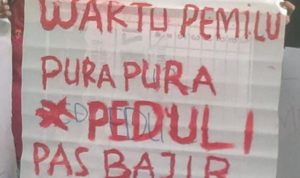 WAKTU PEMILU
PURA PURA
PEDULI
PAS BAJIR